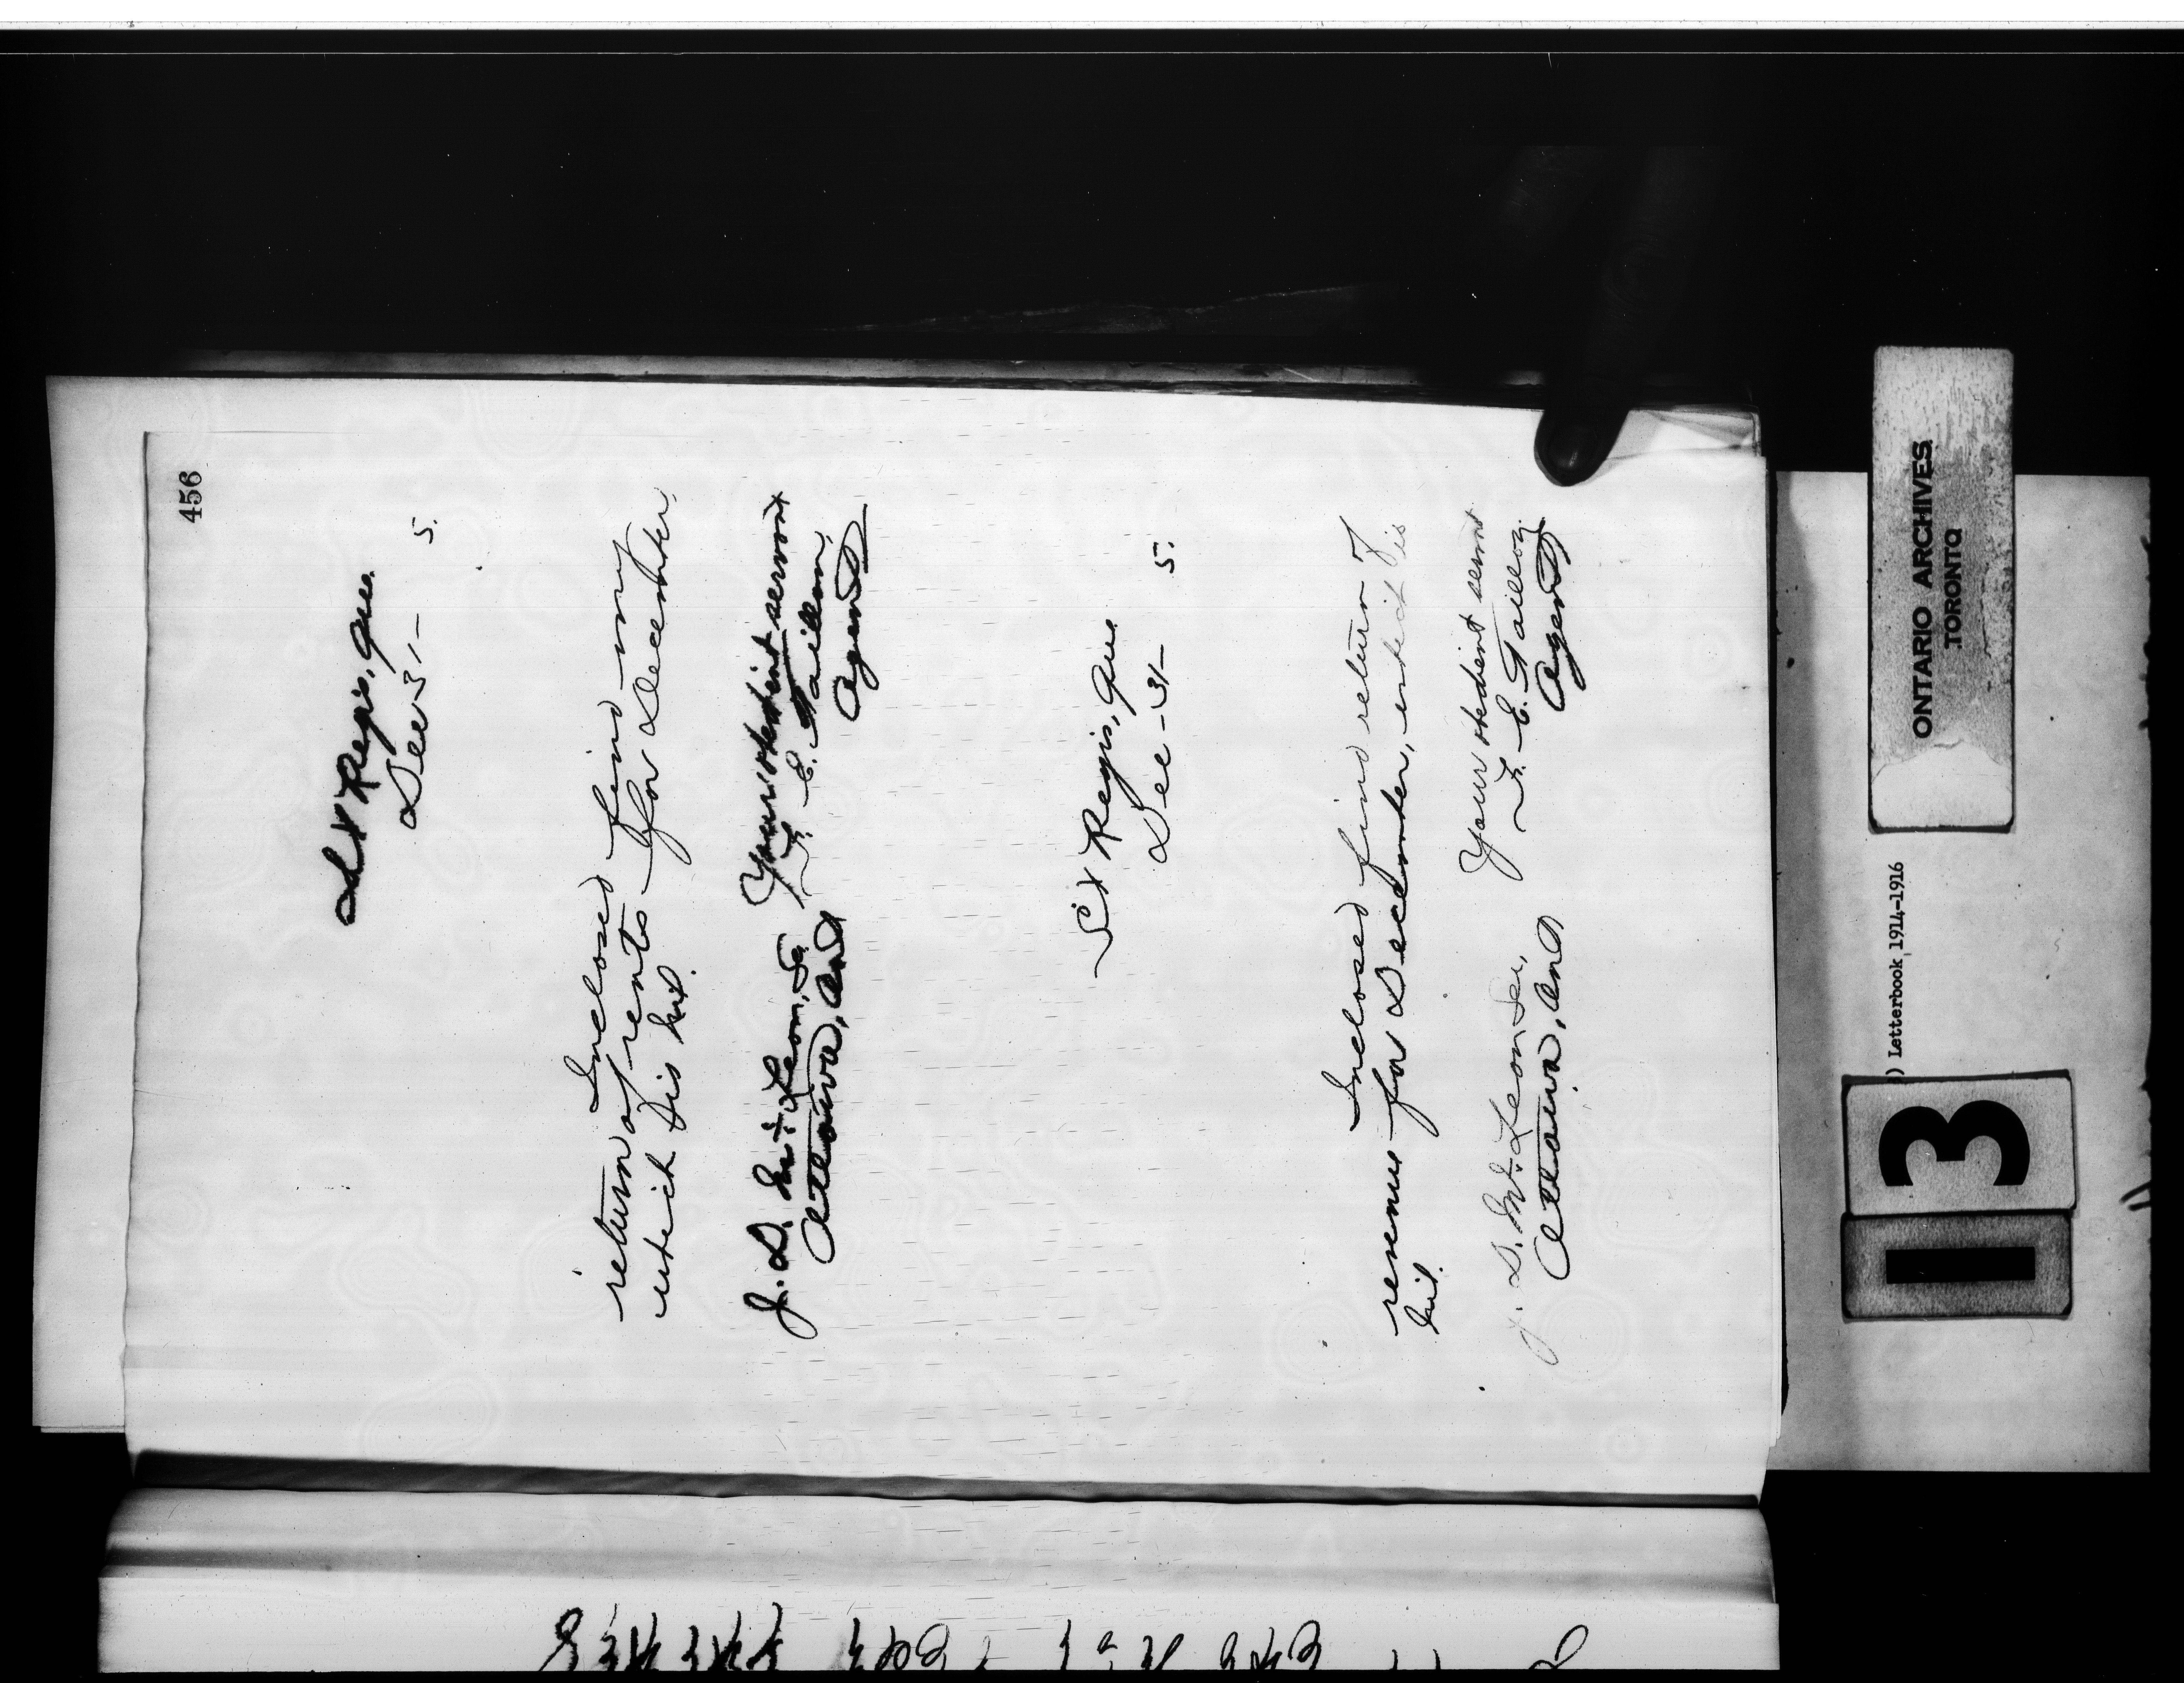 456
St Regis, Que.
Dec 31— 5.
Inclosed find my
return of rents for December
which is nil.
Your obedient servant
F. E. Taillon,
Agent
J. D. McLean, Sec
Ottawa, Ont
St Regis, Que
Dec - 31— 5.
Inclosed find return of
revenue for December, which is
nil.
Your obedient servt
F. E. Taillon,
Agent
J. D. McLean, Sec,
Ottawa, Ont
ONTARIO ARCHIVES
TORONTO
) Letterbook 1914-1916
13